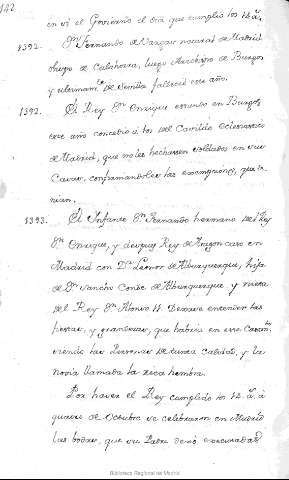 122
en si el Govierno el dia que cumplio los 14 a.s
1392. D.n Fernando de Vargas natural de Madrid
obispo de Calahorra, luego Arzobispo de Burgos
y ultimam.te de Sevilla fallecio este año.
1392. El Rey D.n Enrique estando en Burgos
este año concedio á los del Cavildo eclesiastico
de Madrid, que no les hechassen soldados en sus
Casas, confirmandoles las exempciones, que te-
nian.
1393. El Infante D.n Fernando hermano del Rey
D.n Enrique, y despues Rey de Aragon caso en
Madrid con D.a Leonor de Alburquerque, hija
de D.n Sancho Conde de Alburquerque y nieta
del Rey D.n Alonso 11. Dexase entender las
fiestas, y grandezas, que habria en este Casam.to
siendo las Personas de tanta calidad, y la
novia llamada la rica hembra.
Por haver el Rey cumplido los 14 a.s á
quatro de Octubre se celebraron en Madrid
las bodas, que su Padre dexó efectuadas
Biblioteca Regional de Madrid